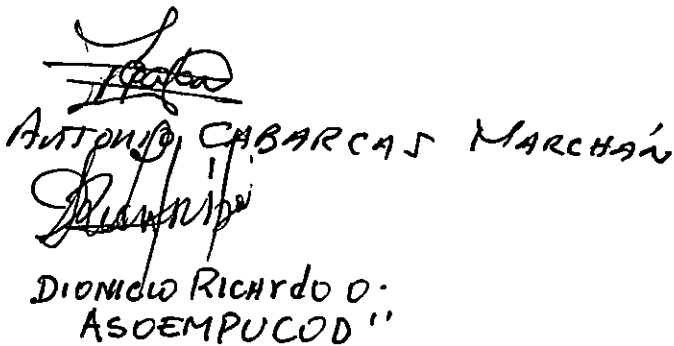 ANTONIO CABARCAS MARCHÁN
DIONICIO RICARDO O.
ASOEMPUCOD"